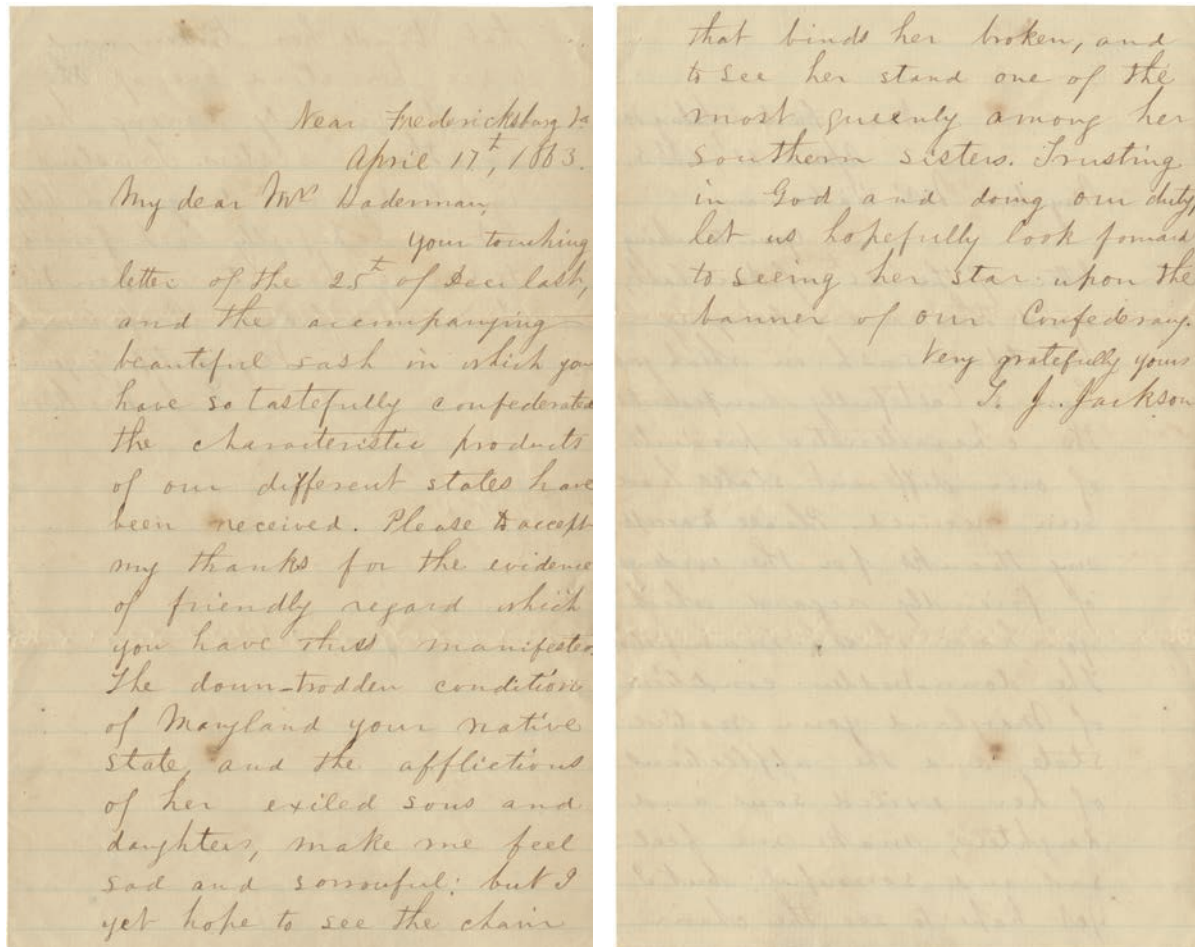 Near Fredericksburg Va
April 17t, 1863.
My dear Mrs Haderman,
Your touching
letter of the 25t of Decr last,
and the accompanying
beautiful sash in which you
have so tastefully confederated
the characteristic products
of our different states have
been received. Please to accept
my thanks for the evidence
of friendly regard which
you have thus manifested.
The down-trodden condition
of Maryland your native
state, and the afflictions
of her exiled sons and
daughters, make me feel
sad and sorrowful; but I
yet hope to see the chain
that binds her broken, and
to see her stand one of the
most queenly among her
southern sisters. Trusting
in God and doing our duty,
let us hopefully look forward
to seeing her star upon the
banner of our Confederacy.
Very gratefully yours
T. J. Jackson